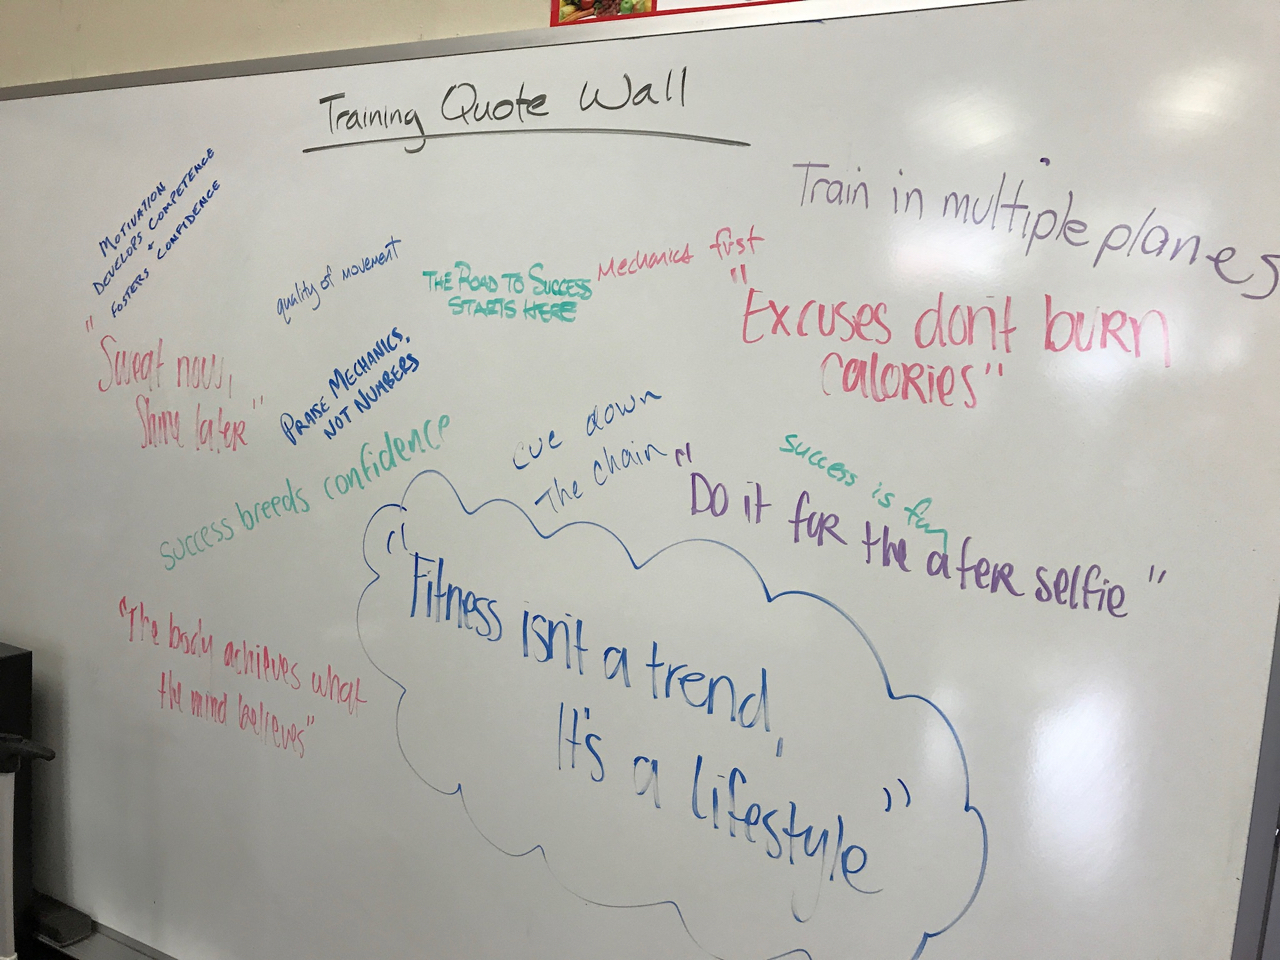 Training Quote Wall
MOTIVATION
DEVELOPS COMPETENCE
+
FOSTERS CONFIDENCE
quality of movement
THE ROAD TO SUCCESS
STARTS HERE
Mechanics first
Train in multiple planes
"Excuses don't burn
calories"
"Sweat now,
Shine later"
PRAISE MECHANICS,
NOT NUMBERS
success breeds confidence
cue down
The chain
success is fun
"Do it for the after selfie"
"The body achieves what
the mind believes"
"Fitness isn't a trend,
It's a lifestyle"